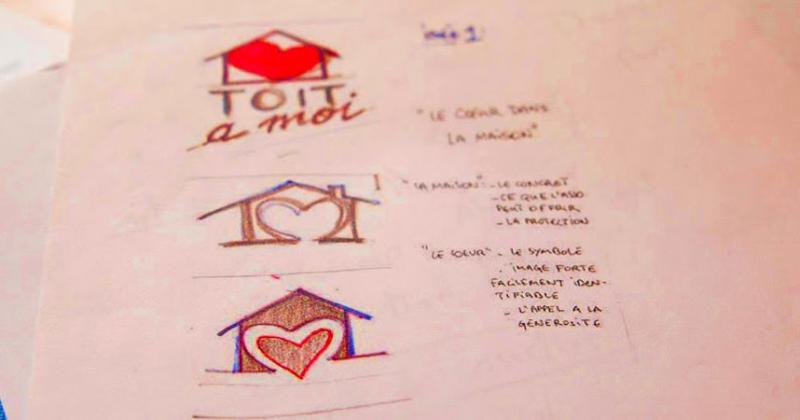 TOIT
a moi
idée 1:
"LE CŒUR DANS
LA MAISON"
"LA MAISON": - LE CONCRET
- CE QUE L'ASSO
PEUT OFFRIR
- LA PROTECTION
"LE CŒUR" - LE SYMBOLE
- IMAGE FORTE
FACILEMENT IDEN-
TIFIABLE
- L'APPEL A LA
GÉNÉROSITÉ